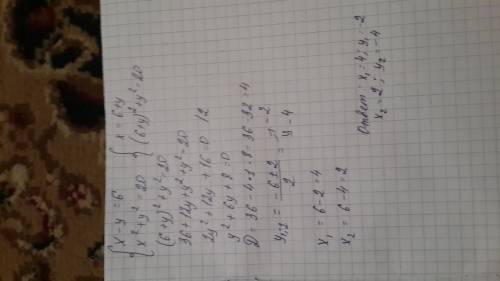 { x - y = 6 { x = 6+y
{ x² + y² = 20 { (6+y)² + y² = 20
(6+y)² + y² = 20
36 + 12y + y² + y² = 20
2y² + 12y + 16 = 0 | 2
y² + 6y + 8 = 0
D = 36 - 4·1·8 = 36 - 32 = 4
y₁,₂ = (-6 ± 2) / 2 = y = -2
y = -4
x₁ = 6 - 2 = 4
x₂ = 6 - 4 = 2
Ответ: x₁ = 4; y₁ = -2
x₂ = 2; y₂ = -4